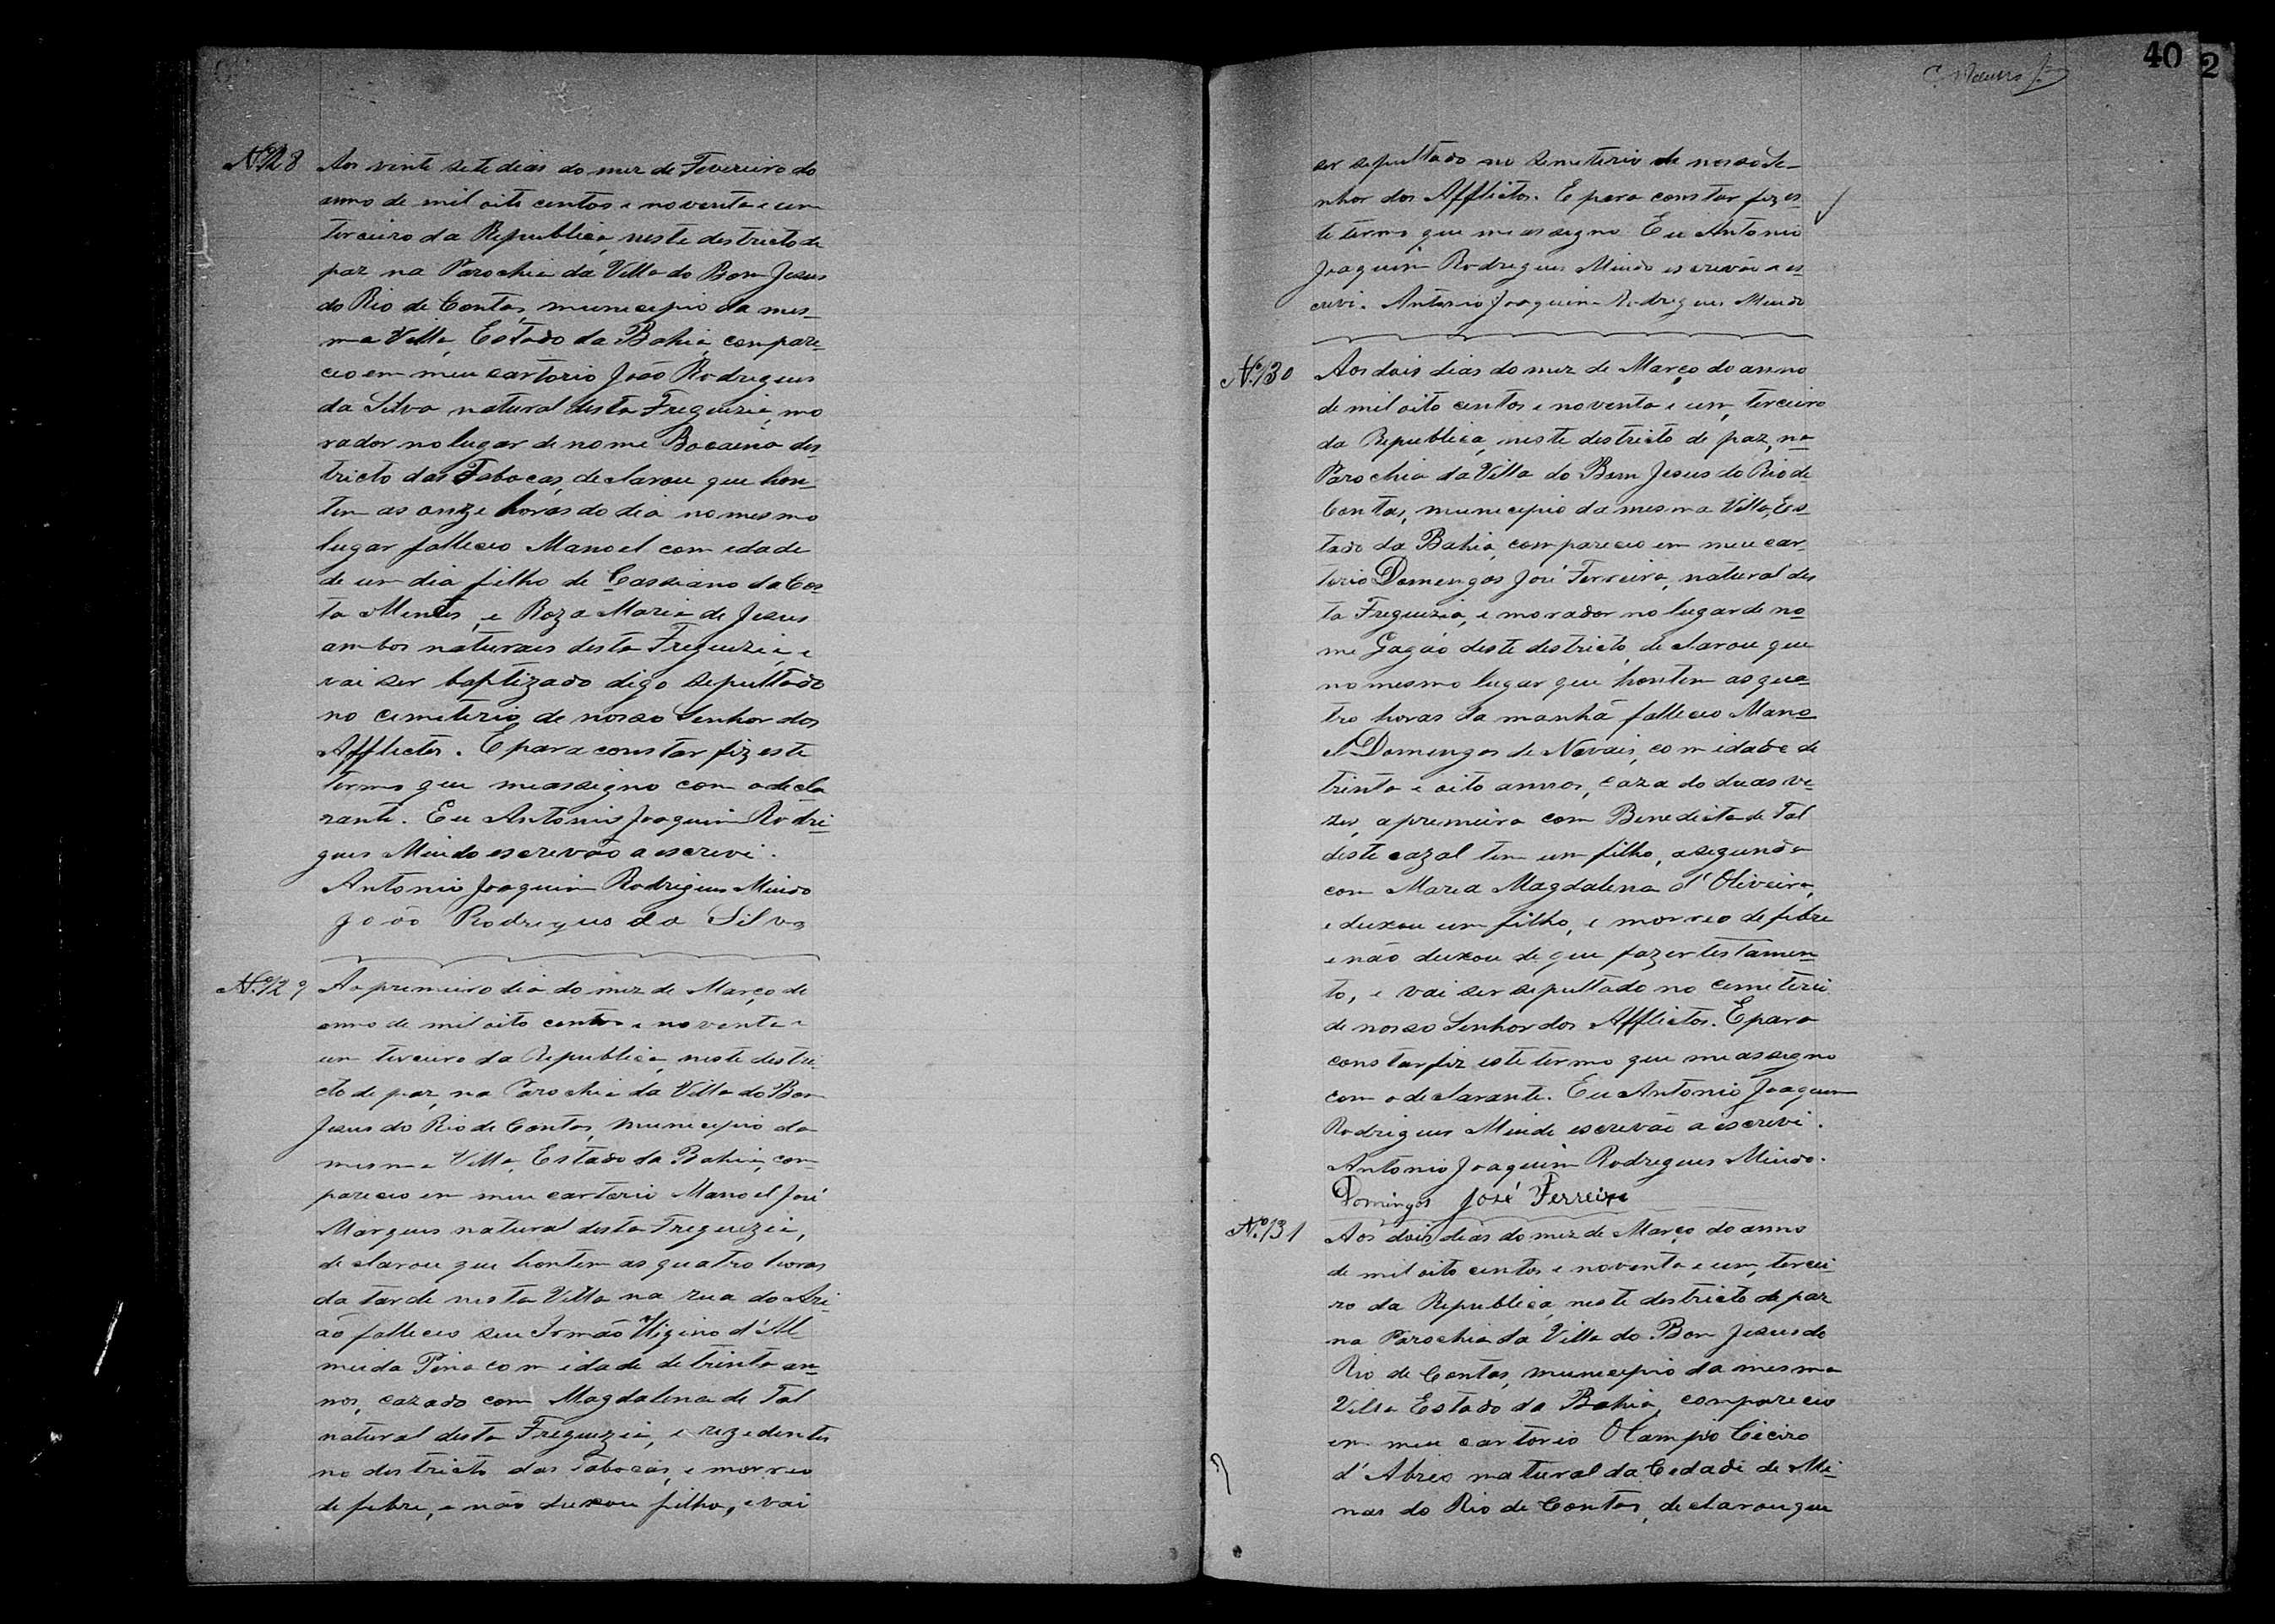 Nº128 Aos vinte sete dias do mez de Fevereiro do
anno de mil oito centos e noventa e um
terceiro da Republica, neste destricto de
paz na Parochia da Villa do Bom Jesus
do Rio de Contas, municipio da mes-
ma Villa, Estado da Bahia, compare-
ceo em meu cartorio João Rodrigues
da Silva natural desta Freguezia, mo
rador no lugar de nome Bocaina des-
tricto das Tabocas, declarou que hon-
tem as onze horas do dia no mesmo
lugar falleceo Manoel com idade
de um dia filho de Cassiano da Cos-
ta Mendes, e Roza Maria de Jesus
ambos naturaes desta Freguezia, e
vai ser baptizado digo sepultado
no cemeterio de nosso Senhor dos
Afflictos. E para constar fiz este
termo que me assigno com o decla
rante. Eu Antonio Joaquim Rodri-
gues Miudo escrevão a escrevi.
Antonio Joaquim Rodrigues Miudo
João Rodrigues da Silva
Nº129 Ao premeiro dia do mez de Março de
anno de mil oito centos e noventa e
um terceiro da Republica, neste destri-
cto de paz, na Parochia da Villa do Bom
Jesus do Rio de Contas, municipio da
mesma Villa, Estado da Bahia, com-
pareceo em meu cartorio Manoel José
Marques natural desta Freguezia,
declarou que hontem as quatro horas
da tarde nesta Villa na rua do Ari-
ão falleceo seu Irmão Higino d'Al-
meida Pina com idade de trinta an-
nos, cazado com Magdalena de Tal
natural desta Freguezia, e rezedentes
no destricto das Tabocas, e morreo
de febre, e não deixou filho, e vai
40
2
ser sepultado no semeterio de nosso Se-
nhor dos Afflictos. E para constar fiz es-
te termo que me assigno Eu Antonio
Joaquim Rodrigues Miudo escrevão a es-
crevi. Antonio Joaquim Rodrigues Miudo
Nº130 Aos dois dias do mez de Março do anno
de mil oito centos e noventa e um, terceiro
da Republica, neste destricto de paz, na
Parochia da Villa do Bom Jesus do Rio de
Contas, municipio da mesma Villa, Es-
tado da Bahia, compareceo em meu car-
torio Domingos José Ferreira, natural des
ta Freguezia, e morador no lugar de no-
me Gagáo deste destricto, declarou que
no mesmo lugar que hontem as qua-
tro horas da manhã falleceo Mano-
el Domingos de Novais, com idade de
trinta e oito annos, cazado duas ve-
zes, a premeira com Benedicta de Tal
deste cazal tem um filho, a segunda
com Maria Magdalena d'Oliveira,
e deixou um filho, e morreo de febre
e não deixou de que fazer testamen-
to, e vai ser sepultado no cemeterio
de nosso Senhor dos Afflictos. E para
constar fiz este termo que me assigno
com o declarante. Eu Antonio Joaquim
Rodrigues Miudo escrevão a escrevi.
Antonio Joaquim Rodrigues Miudo.
Domingos José Ferreira
Nº131 Aos dois dias do mez de Março do anno
de mil oito centos e noventa e um, tercei-
ro da Republica, neste destricto de paz
na Parochia da Villa do Bom Jesus do
Rio de Contas, municipio da mesma
Villa Estado da Bahia, compareceo
em meu cartorio Olampio Ciciro
d'Abreo natural da Cedade de Mi-
nas do Rio de Contas, declarou que